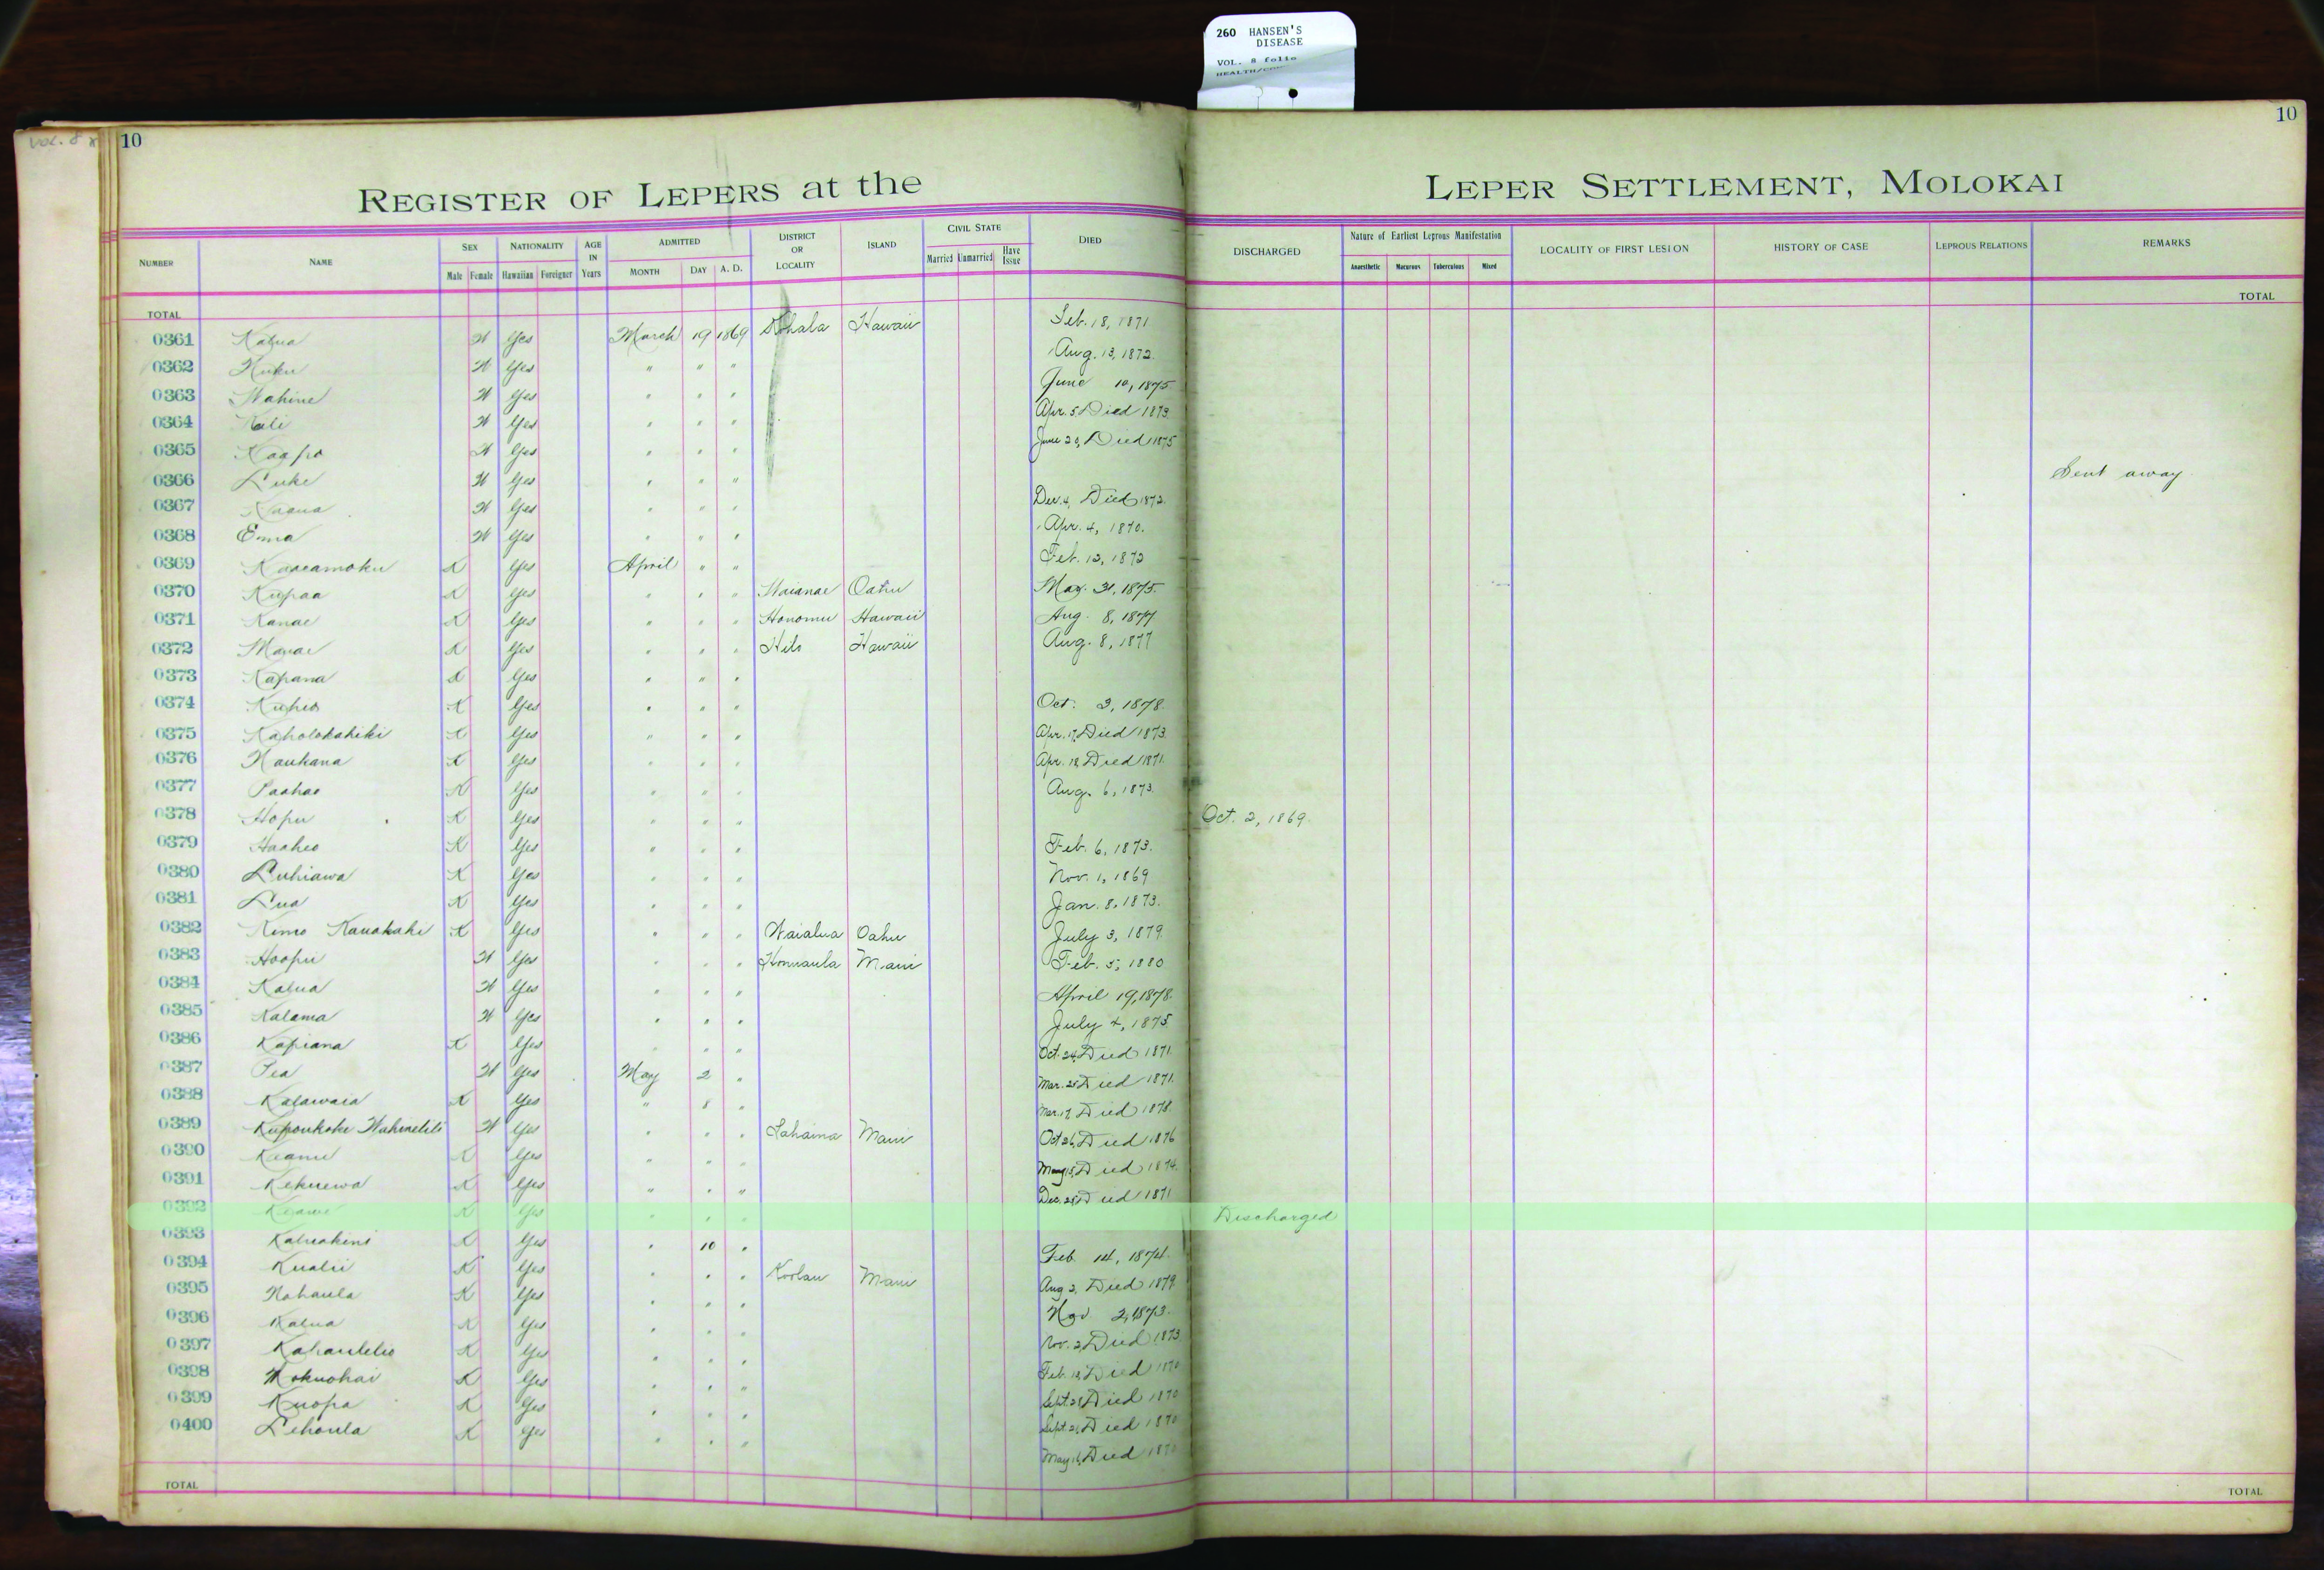 260 HANSEN'S
DISEASE
VOL. 8 folio
VOL. 8
10
10
REGISTER OF LEPERS at the LEPER SETTLEMENT, MOLOKAI
NUMBER NAME SEX NATIONALITY AGE IN Years ADMITTED DISTRICT OR LOCALITY ISLAND CIVIL STATE DIED DISCHARGED Nature of Earliest Leprous Manifestation LOCALITY OF FIRST LESION HISTORY OF CASE LEPROUS RELATIONS REMARKS
Male Female Hawaiian Foreigner MONTH DAY A. D. Married Unmarried Have Issue Anaesthetic Macurous Tuberculous Mixed
TOTAL TOTAL
0361 Kalua W Yes March 19 1869 Kohala Hawaii Feb. 18, 1871
0362 Kuku W Yes " " " Aug. 13, 1872.
0363 Wahine W Yes " " " June 10, 1875
0364 Kali W Yes " " " Apr. 5 Died 1873.
0365 Kaapo W Yes " " " June 20, Died 1875
0366 Luke W Yes " " " Sent away
0367 W Yes " " " Dec. 4, Died 1872.
0368 Emma W Yes " " " Apr. 4, 1870.
0369 Kaaeamoku K Yes April " " Feb. 12, 1872
0370 Kupaa K Yes " " " Waianae Oahu May. 31, 1875.
0371 Kanae K Yes " " " Honomu Hawaii Aug. 8, 1877
0372 K Yes " " " Hilo Hawaii Aug. 8, 1877
0373 Kapana K Yes " " "
0374 Kuheo K Yes " " " Oct. 3, 1878.
0375 Kaholokahiki K Yes " " " Apr. 17, Died 1873.
0376 Naukana K Yes " " " Apr. 18 Died 1871.
0377 Paahao K Yes " " " Aug. 6, 1873.
0378 Hopu K Yes " " " Oct. 2, 1869.
0379 Haaheo K Yes " " " Feb. 6, 1873.
0380 Luhiawa K Yes " " " Nov. 1, 1869
0381 Lua K Yes " " " Jan. 8, 1873.
0382 Kimo Kauakahi K Yes " " " Waialua Oahu July 3, 1879.
0383 Hoopii W Yes " " " Honuaula Maui Feb. 5, 1880
0384 Kalua W Yes " " " April 19, 1878.
0385 Kalama W Yes " " " July 4, 1875.
0386 Kapiana K Yes " " " Oct. 24, Died 1871.
0387 Pea W Yes May 2 " Mar. 25 Died 1871.
0388 Kalawaia K Yes " 8 " Mar. 17, Died 1878.
0389 Kupoukoke W Yes " " " Lahaina Maui Oct 26, Died 1876
0390 Keanu K Yes " " " May 15, Died 1874.
0391 Kekuewa K Yes " " " Dec. 25, Died 1871
0392 Keawe K Yes " " " Discharged
0393 Kaluakini K Yes " 10 " Feb. 14, 1874.
0394 Kualii K Yes " " " Koolau Maui Aug 2, Died 1879.
0395 Nahaula K Yes " " " Nov 2, 1873.
0396 Kalua K Yes " " " Nov. 2, Died 1873
0397 Kahaulelio K Yes " " " Feb. 18, Died 1870
0398 Mokuohai K Yes " " " Sept. 25 Died 1870
0399 Kuopa K Yes " " " Sept. 21, Died 1870
0400 Lehoula K Yes " " " May 16, Died 1870
TOTAL TOTAL